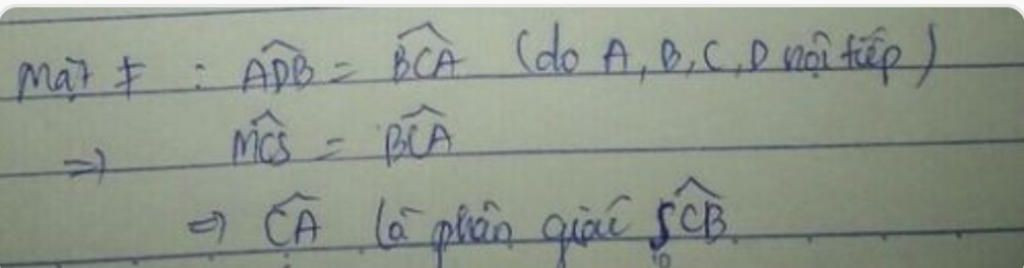 Mặt ≠ : \widehat{ADB} = \widehat{BCA} (do A, B, C, D nội tiếp)
⇒ \widehat{MCS} = \widehat{BCA}
⇒ \widehat{CA} là phân giác \widehat{SCB}